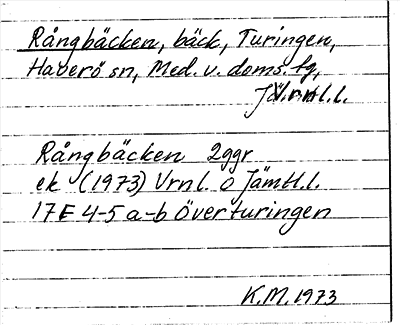 Rångbäcken, bäck, Turingen,
Haverö sn, Med. v. doms. fg,
Jä l.
Rångbäcken 2ggr
ek (1973) Vrnl. o Jämtl.l.
17E 4-5 a-b Överturingen
K.M. 1973